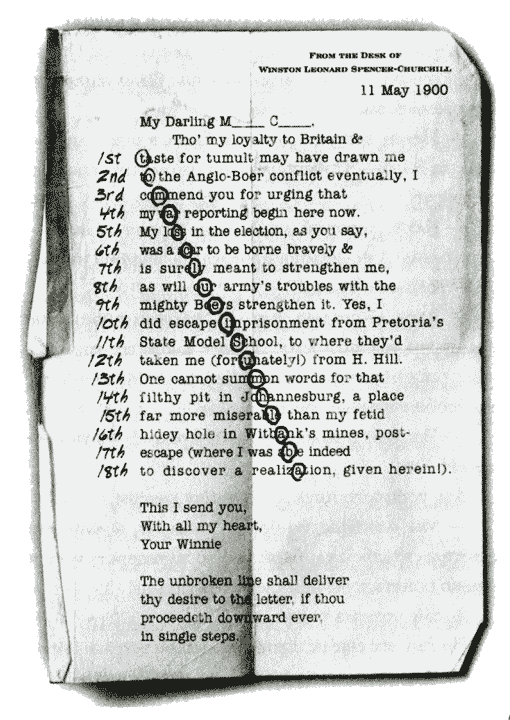 FROM THE DESK OF
WINSTON LEONARD SPENCER-CHURCHILL
11 May 1900
My Darling M____ C____.
Tho' my loyalty to Britain &
1st taste for tumult may have drawn me
2nd to the Anglo-Boer conflict eventually, I
3rd commend you for urging that
4th my war reporting begin here now.
5th My loss in the election, as you say,
6th was a scar to be borne bravely &
7th is surely meant to strengthen me,
8th as will our army's troubles with the
9th mighty Boers strengthen it. Yes, I
10th did escape imprisonment from Pretoria's
11th State Model School, to where they'd
12th taken me (fortunately!) from H. Hill.
13th One cannot summon words for that
14th filthy pit in Johannesburg, a place
15th far more miserable than my fetid
16th hidey hole in Witbank's mines, post-
17th escape (where I was able indeed
18th to discover a realization, given herein!).
This I send you,
With all my heart,
Your Winnie
The unbroken line shall deliver
thy desire to the letter, if thou
proceedeth downward ever,
in single steps.